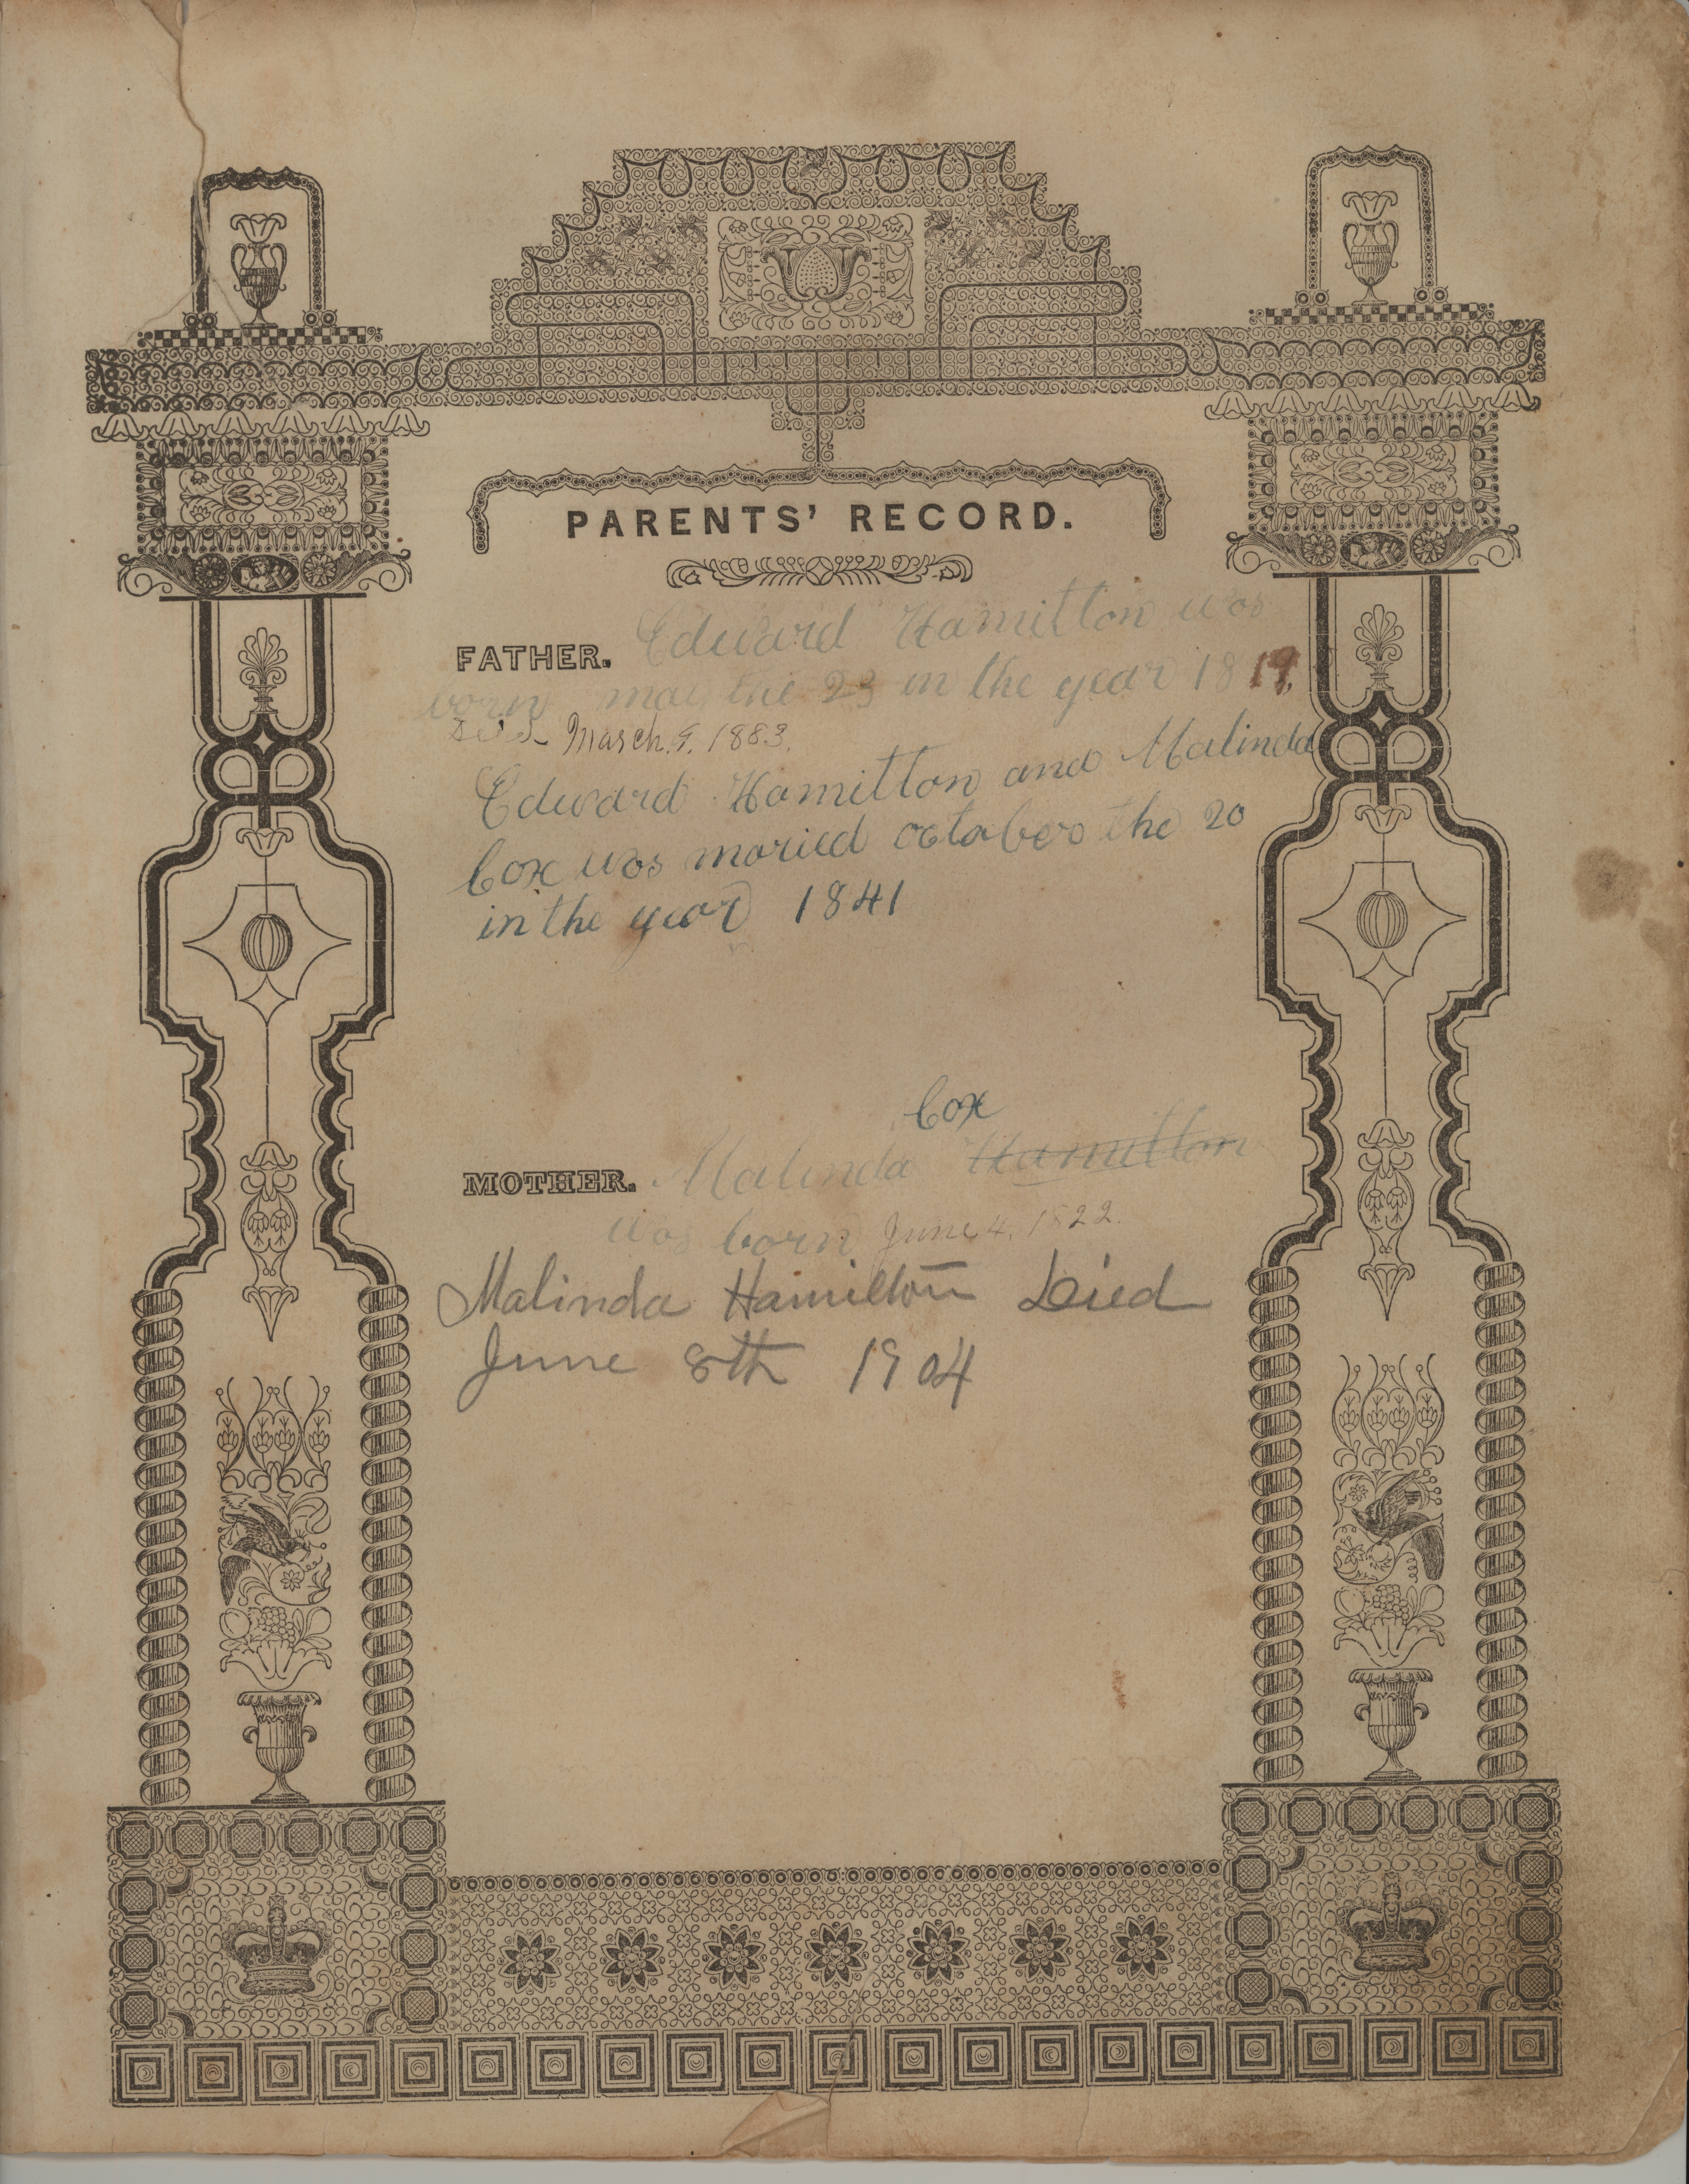 PARENTS' RECORD.
FATHER. Edward Hamilton was
born mai the 23 in the year 1819.
Died March. 9. 1883.
Edward Hamilton and Malinda
Cox was maried october the 20
in the year 1841
Cox
MOTHER. Malinda Hamilton
was born June 4, 1822.
Malinda Hamilton Died
June 8th 1904